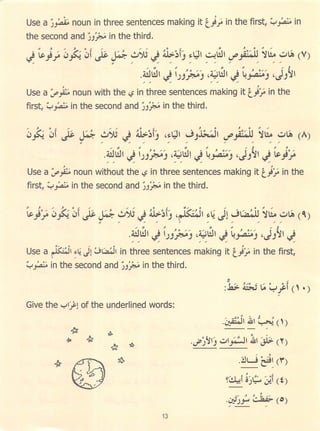 Use a مجرور noun in three sentences making it مرفوع in the first, منصوب in
the second and مجرور in the third.
(٧) هات مثالا للمنقوص المحلى
في الثاني، ومجرورا في الثالث.
Use a منقوص noun with the ي in three sentences making it مرفوع in the
first, منصوب in the second and مجرور in the third.
(٨) هات مثالا للمنقوص المحذوف الياء، وأدخله في ثلاث جمل على أن يكون
مرفوعا في الأول، ومنصوبا في الثاني، ومجرورا في الثالث.
Use a منقوص noun without the ي in three sentences making it مرفوع in the
first, منصوب in the second and مجرور in the third.
(٩) هات مثالا للمضاف إلى ياء المتكلم، وأدخله في ثلاث جمل على أن يكون مرفوعا
في الأول، ومنصوبا في الثاني، ومجرورا في الثالث.
Use a المضاف إلى ياء المتكلم in three sentences making it مرفوع in the first,
منصوب in the second and مجرور in the third.
(١٠) أعرب ما تحته خط:
Give the إعراب of the underlined words:
(١)
(٢) خلق الله السموات والأرض.
(٣)
(٤) أين سيارة أبيك؟
(٥)
13